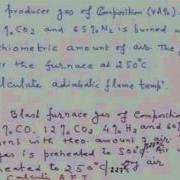 producer gas of Composition (v/v%)
% CO2 and 65% N2 is burned
hiometric amount of air. The
the furnace at 250°C
lculate adiabatic flame temp
Blast furnace gas of Composition
% CO, 12% CO2 4% H2 and 60
with theo. amount of air
gas is preheated to 500°C
heated to 250°C